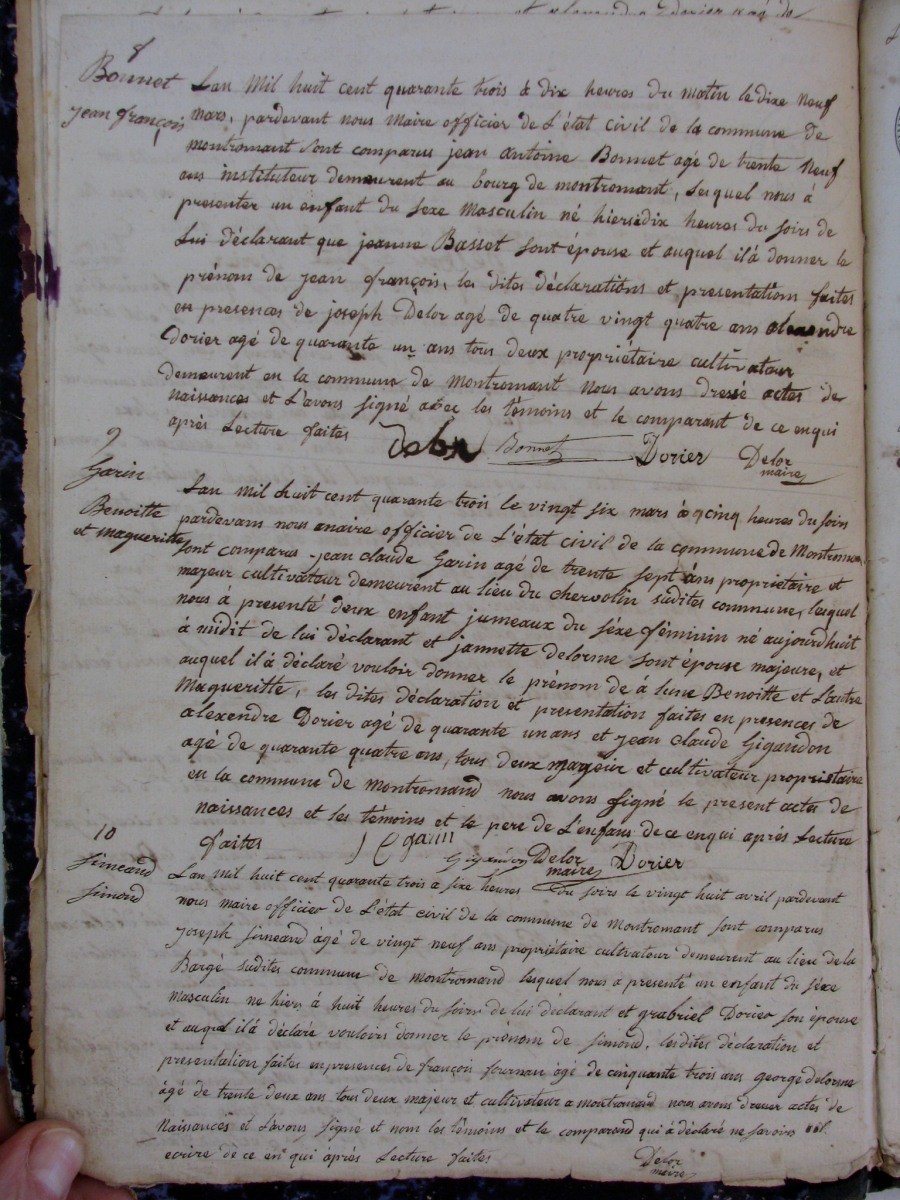 8
Bonnet
jean françois
L'an Mil huit cent quarante trois à dix heures du matin le dixe neuf
mars, pardevant nous Maire officier de L'état civil de la commune de
montromant sont comparus jean antoine Bonnet agé de trente Neuf
ans instituteur demeurent au bourg de montromant, Lequel nous à
presenter un enfant du sexe Masculin né hiers à dix heures du soirs de
Lui déclarant que jeanne Basset sont épouse et auquel il à donner le
prénom de jean françois, les dites déclarations et presentations faites
en presences de joseph Delor agé de quatre vingt quatre ans alexandre
Dorier agé de quarante un ans tous deux propriétaire cultivateur
demeurent en la commune de Montromant Nous avons dressé actes de
naissances et L'avons signé avec les témoins et le comparant de ce enqui
après Lecture faites
Delor Bonnet Dorier Delor
maire
9
Garin
Benoitte
et magueritte
L'an mil huit cent quarante trois le vingt six mars à cinq heures du soirs
pardevans nous maire officier de L'état civil de la commune de Montroman
sont comparus jean claude Garin agé de trente sept ans propriétaire et
majeur cultivateur demeurent au lieu du chervolin sudites commune, lesquel
nous à presenté deux enfant jumeaux du séxe féminin né aujourdhuit
à midit de lui déclarant et jannette delorme sont épouse majeure, et
auquel il à déclaré vouloir donner le prénom de à lune Benoitte et L'autre
Magueritte, les dites déclaration et presentation faites en presences de
alexendre Dorier agé de quarante un ans et jean claude Gigandon
agé de quarante quatre ans, tous deux mageur et cultivateur propriétaire
en la commune de montromand nous avons signé le present actes de
naissances et les témoins et le pere de L'enfans de ce enqui après Lecture
faites
J C garin Gigandon Delor Dorier
maire
10
simeand
simond
L'an mil huit cent quarante trois à sixe heures du soirs le vingt huit avril pardevant
nous maire officier de L'état civil de la commune de Montromant sont comparus
joseph simeand àgé de vingt neuf ans propriétaire cultivateur demeurent au lieu de la
Bargé sudites commune de montromand lesquel nous a presenté un enfant du séxe
masculin ne hiers à huit heures du soirs de lui déclarant et grabriel Dorier son épouse
et auqal il à déclaré vouloirs donner le prénom de simond, les dites déclaration et
presentation faites en presences de françois fournan àgé de cinquante trois ans george delorme
àgé de trente deux ans tous deux majeur et cultivateur a montromand nous avons dresser actes de
Naissances et L'avons signé et nom les témoins et le comparand qui à déclaré ne savoirs
ecrire de ce en qui après Lecture faites
Delor
maire